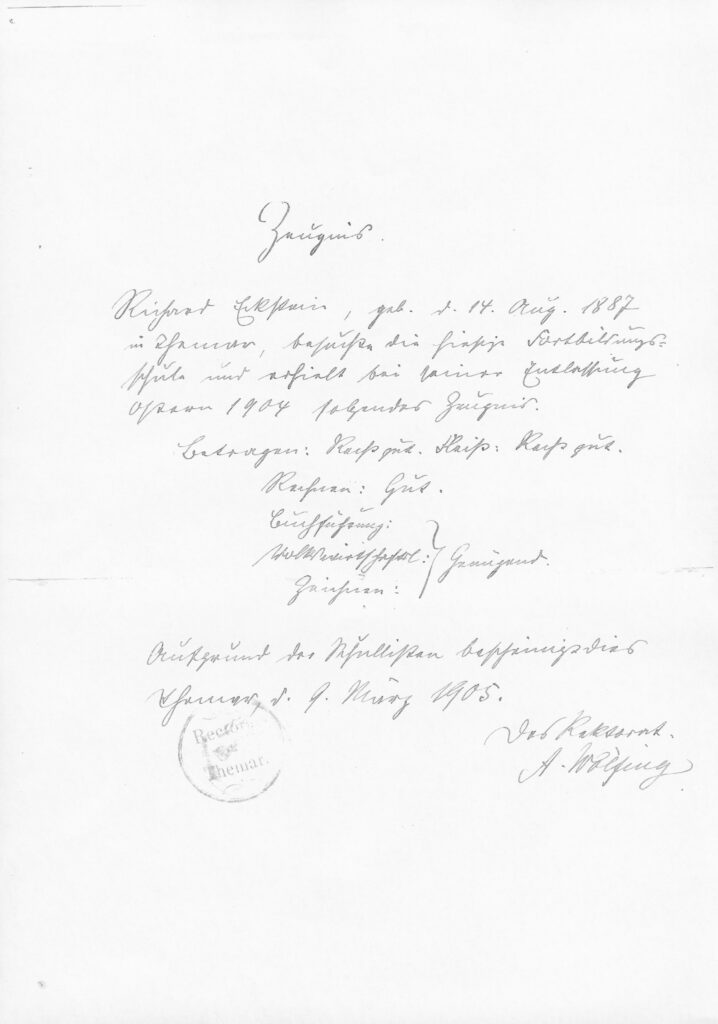 Zeugnis.
Richard Eckstein, geb. d. 14. Aug. 1887
in Themar, besuchte die hiesige Fortbildungs=
schule und erhielt bei seiner Entlassung
Ostern 1904 folgendes Zeugnis.
Betragen: Recht gut. Fleiß: Recht gut.
Rechnen: Gut.
Buchführung:
Volkswirtschaftl: } Genügend.
Zeichnen:
Aufgrund der Schullisten bescheinigt dies
Themar, d. 9. März 1905.
Das Rektorat.
A. Wölfing
Rector
Themar.